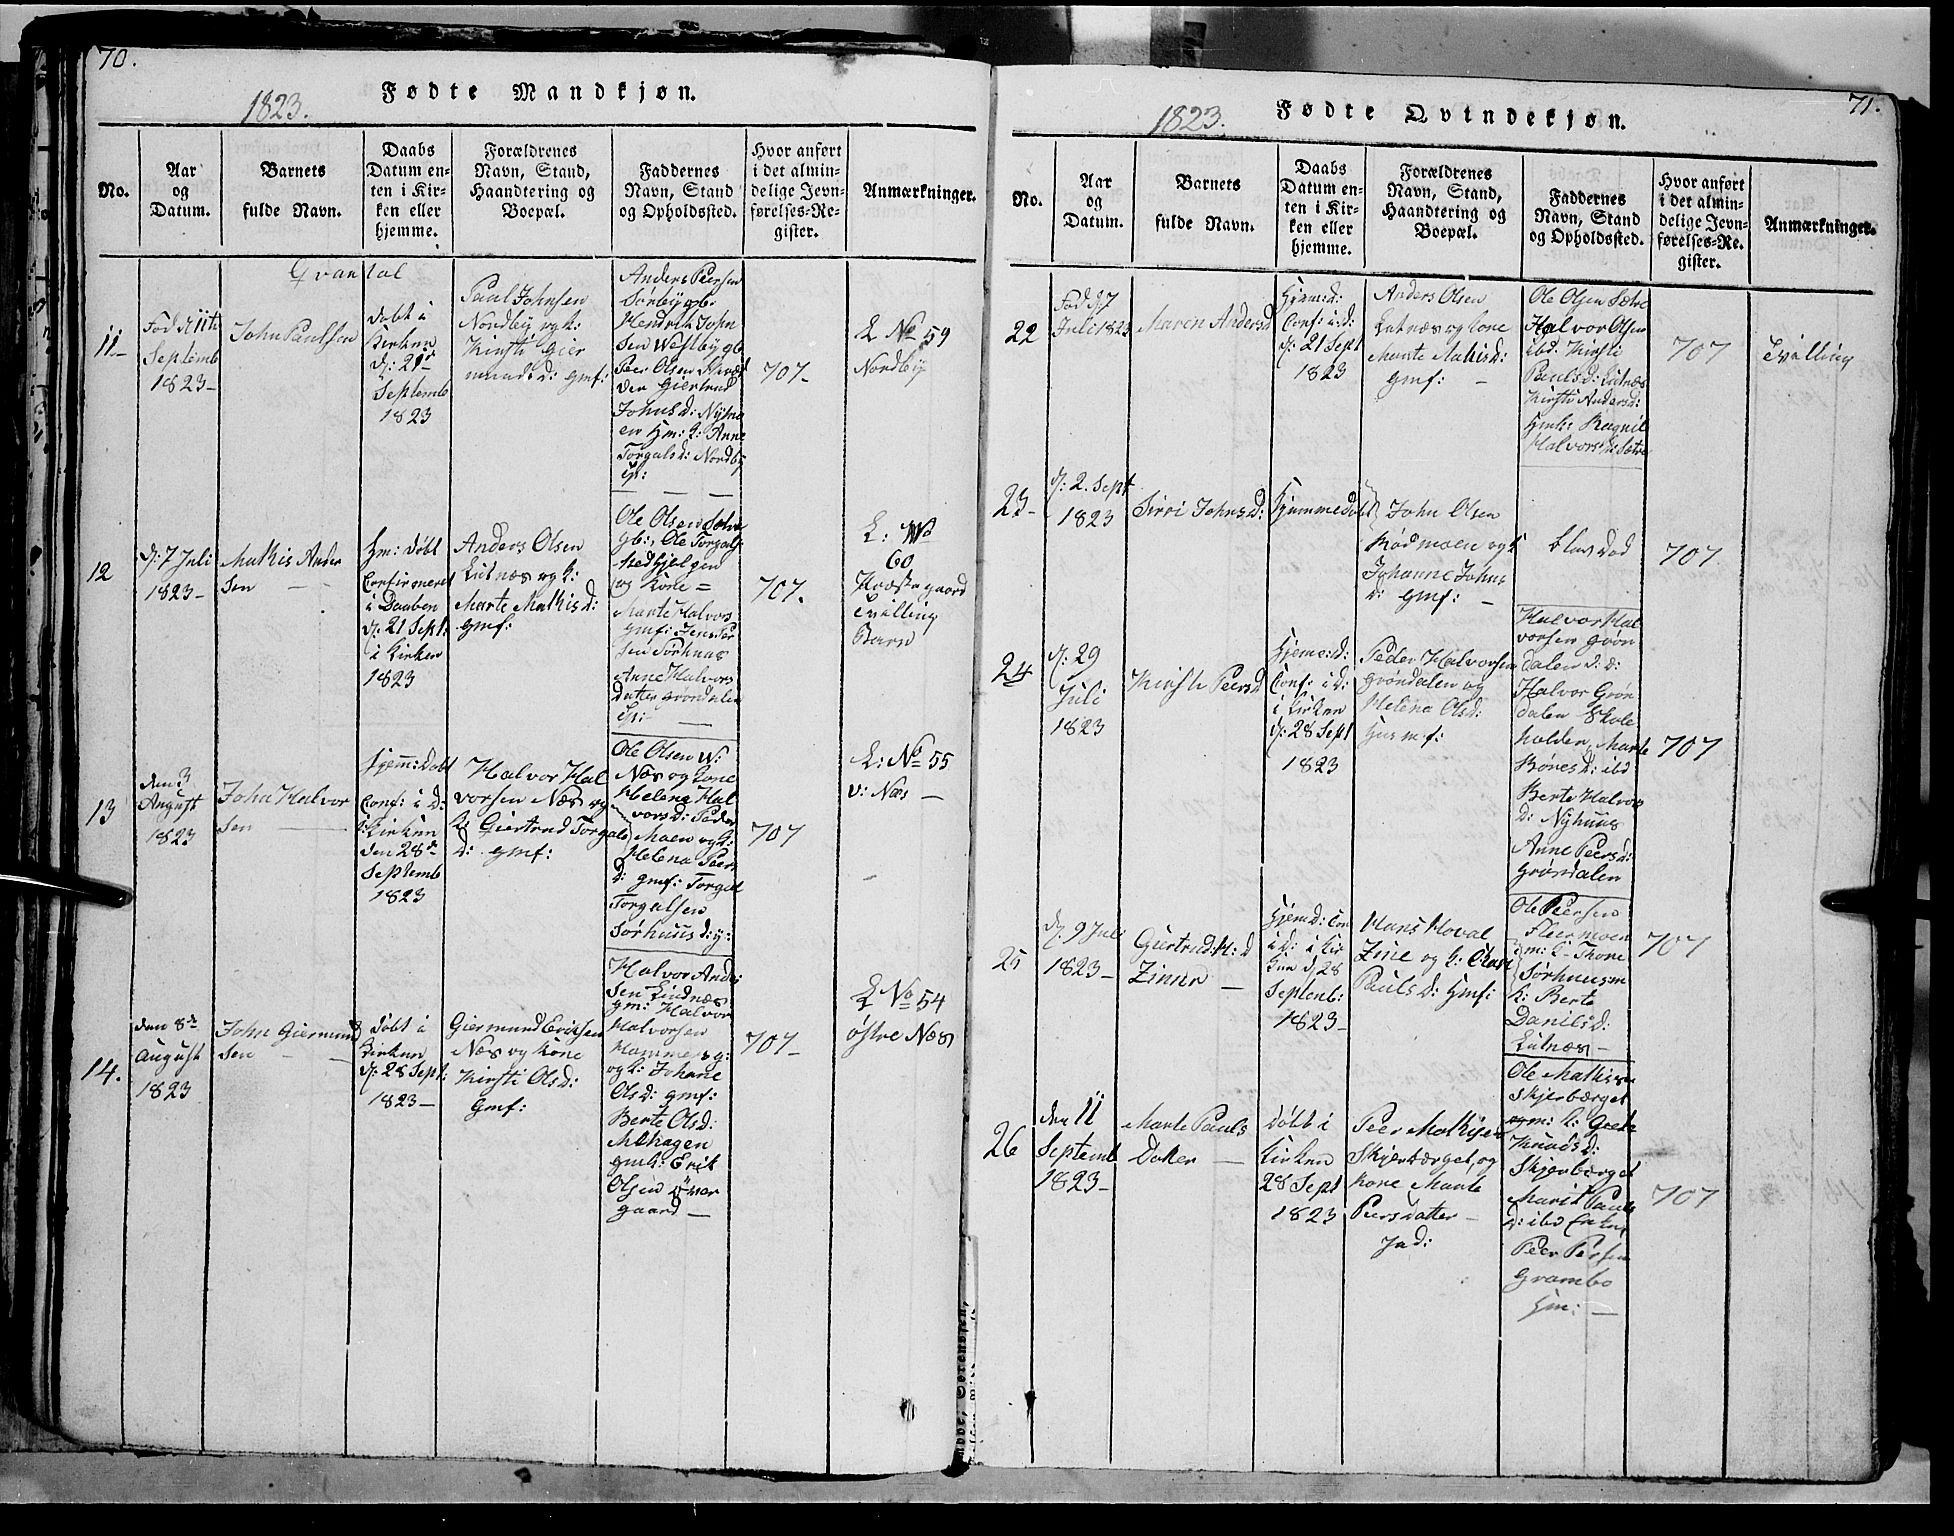 70.
1823.
Fødte Mandkjøn.
No.
Aar
og
Datum.
Barnets
fulde Navn.
Daabs
Datum en-
ten i Kir-
ken eller
hjemme.
Forældrenes
Navn, Stand,
Haandtering og
Boepæl.
Faddernes
Navn, Stand
og Opholdssted.
Hvor anført
i det almin-
delige Jevn-
førelses-Re-
gister.
Anmærkninger.
11-
Fød d 11te
Septemb
1823-
John Paulsen
døbt i
Kirken
d: 21de
Septemb
1823
Paul Johnsen
Nordby og k:
Kirsti Gier
munds d: gmf:
Anders Peersen
Sørby gb:
Hendrik John
sen Westby gb
Peer Olsen
den Giertrud
Johns d: Nyhu
en Hm: k: Anne
Torgals d: Nordby
707-
L No 59
Nordby
12
d: 7 Juli
1823-
Mathis Ander
sen
Hm: døbt
Confirmeret
i Daaben
d: 21 Sept:
i Kirken
1823
Anders Olsen
Lutnæs og k:
Marte Mathis d:
gmf:
Ole Olsen
gb: Ole Torgals
og Kone =
Marte Halvors
gmf: Jens Peer
sen Sørhuus
Anne Halvors
datter Grøndalen
707.
L: No
60
Præstegaard
Tvilling
Barn
13
den 3
August
1823
John Halvor
sen
hjem: døbt
Conf: i d:
i Kirken
den 28de
Septemb
1823
Halvor Hal
vorsen Næs og
k: Giertrud Torgals
d: gmf:
Ole Olsen W:
Næs og Kone
Helena Hal
vors d: Peder
Moen og k:
Helena Peers
d: gmf: Torgal
Torgalsen
Sørhuus d: y:
707
L: No 55
v: Næs
14.
den 8de
August
1823
John Giermund
sen
døbt i
Kirken
d: 28 Sept:
1823-
Giermund Eriksen
Næs og Kone
Kirsti Ols d:
gmf:
Halvor Ander
sen Lindnæs
gm: Halvor
Halvorsen
Hammer g:
og k: Johane
Ols d: gmf:
Berte Ols d:
Mohagen
gmk: Erik
Olsen
gaard
707-
L No 54
østre Næs
71.
1823.
Fødte Qvindekjøn.
No.
Aar
og
Datum.
Barnets
fulde Navn.
Daabs
Datum en-
ten i Kir-
ken eller
hjemme.
Forældrenes
Navn, Stand,
Haandtering og
Boepæl.
Faddernes
Navn, Stand
og Opholdssted.
Hvor anført
i det almin-
delige Jevn-
førelses-Re-
gister.
Anmærkninger.
22
Fød d: 7
Juli 1823
Maren Anders d
Hjem: d:
Conf: i: d:
d: 21 Sept
1823
Anders Olsen
Lutnæs og Kone
Marte Mathis d:
gmf: -
Ole Olsen Sætre
Halvor Olsen
ibd: Kirsti
Pauls d: Lutnæs
Kirsti Anders d:
Ragnil
Halvors d: Sætre
707
Tvilling
23-
d: 2. Sept
1823
Siri Johns d:
Hjemmedøbt
John Olsen
Rødmoen og k
Johanne Johns
d: gmf: -
blev død
707
24
d: 29
Juli
1823
Kirsti Peers d
Hjeme: d:
Conf: i d:
i Kirken
d: 28 Sept
1823
Peder Halvorsen
Grøndalen og
Helena Ols d:
Husmf:
Halvor Hal
vorsen Grøn
dalen d: d:
Halvor Grøn
dalen Skole
holder, Marte
Bones d: ibd
Berte Halvors
d: Nyhuus
Anne Peers d:
Grøndalen
707
25
d: 9 Juli
1823-
Giertrud: H: d
Zimer
Hjem d: Con
i d: i Kir
ken d, 28
Septemb:
1823-
Hans Hoval
Zine og k:
Pauls d: Hmf:
Ole Peersen
Flermoen
m: k- Thore
Sørhuus m
k: Berte
Danils d:
Lutnæs-
707
26
den 11
Septemb
1823-
Marte Pauls
Datter
døbt i
Kirken
28 Sept
1823
Peer Mathisen
Skjerbærget, og
Kone Marte
Peersdatter -
Ind:
Ole Mathisen
Skjerbærget
m: k: Grete
Knuds d:
Skjerbærget
Marit Pauls
d: ibd
Peer Persen
Grambo
Hm: -
707